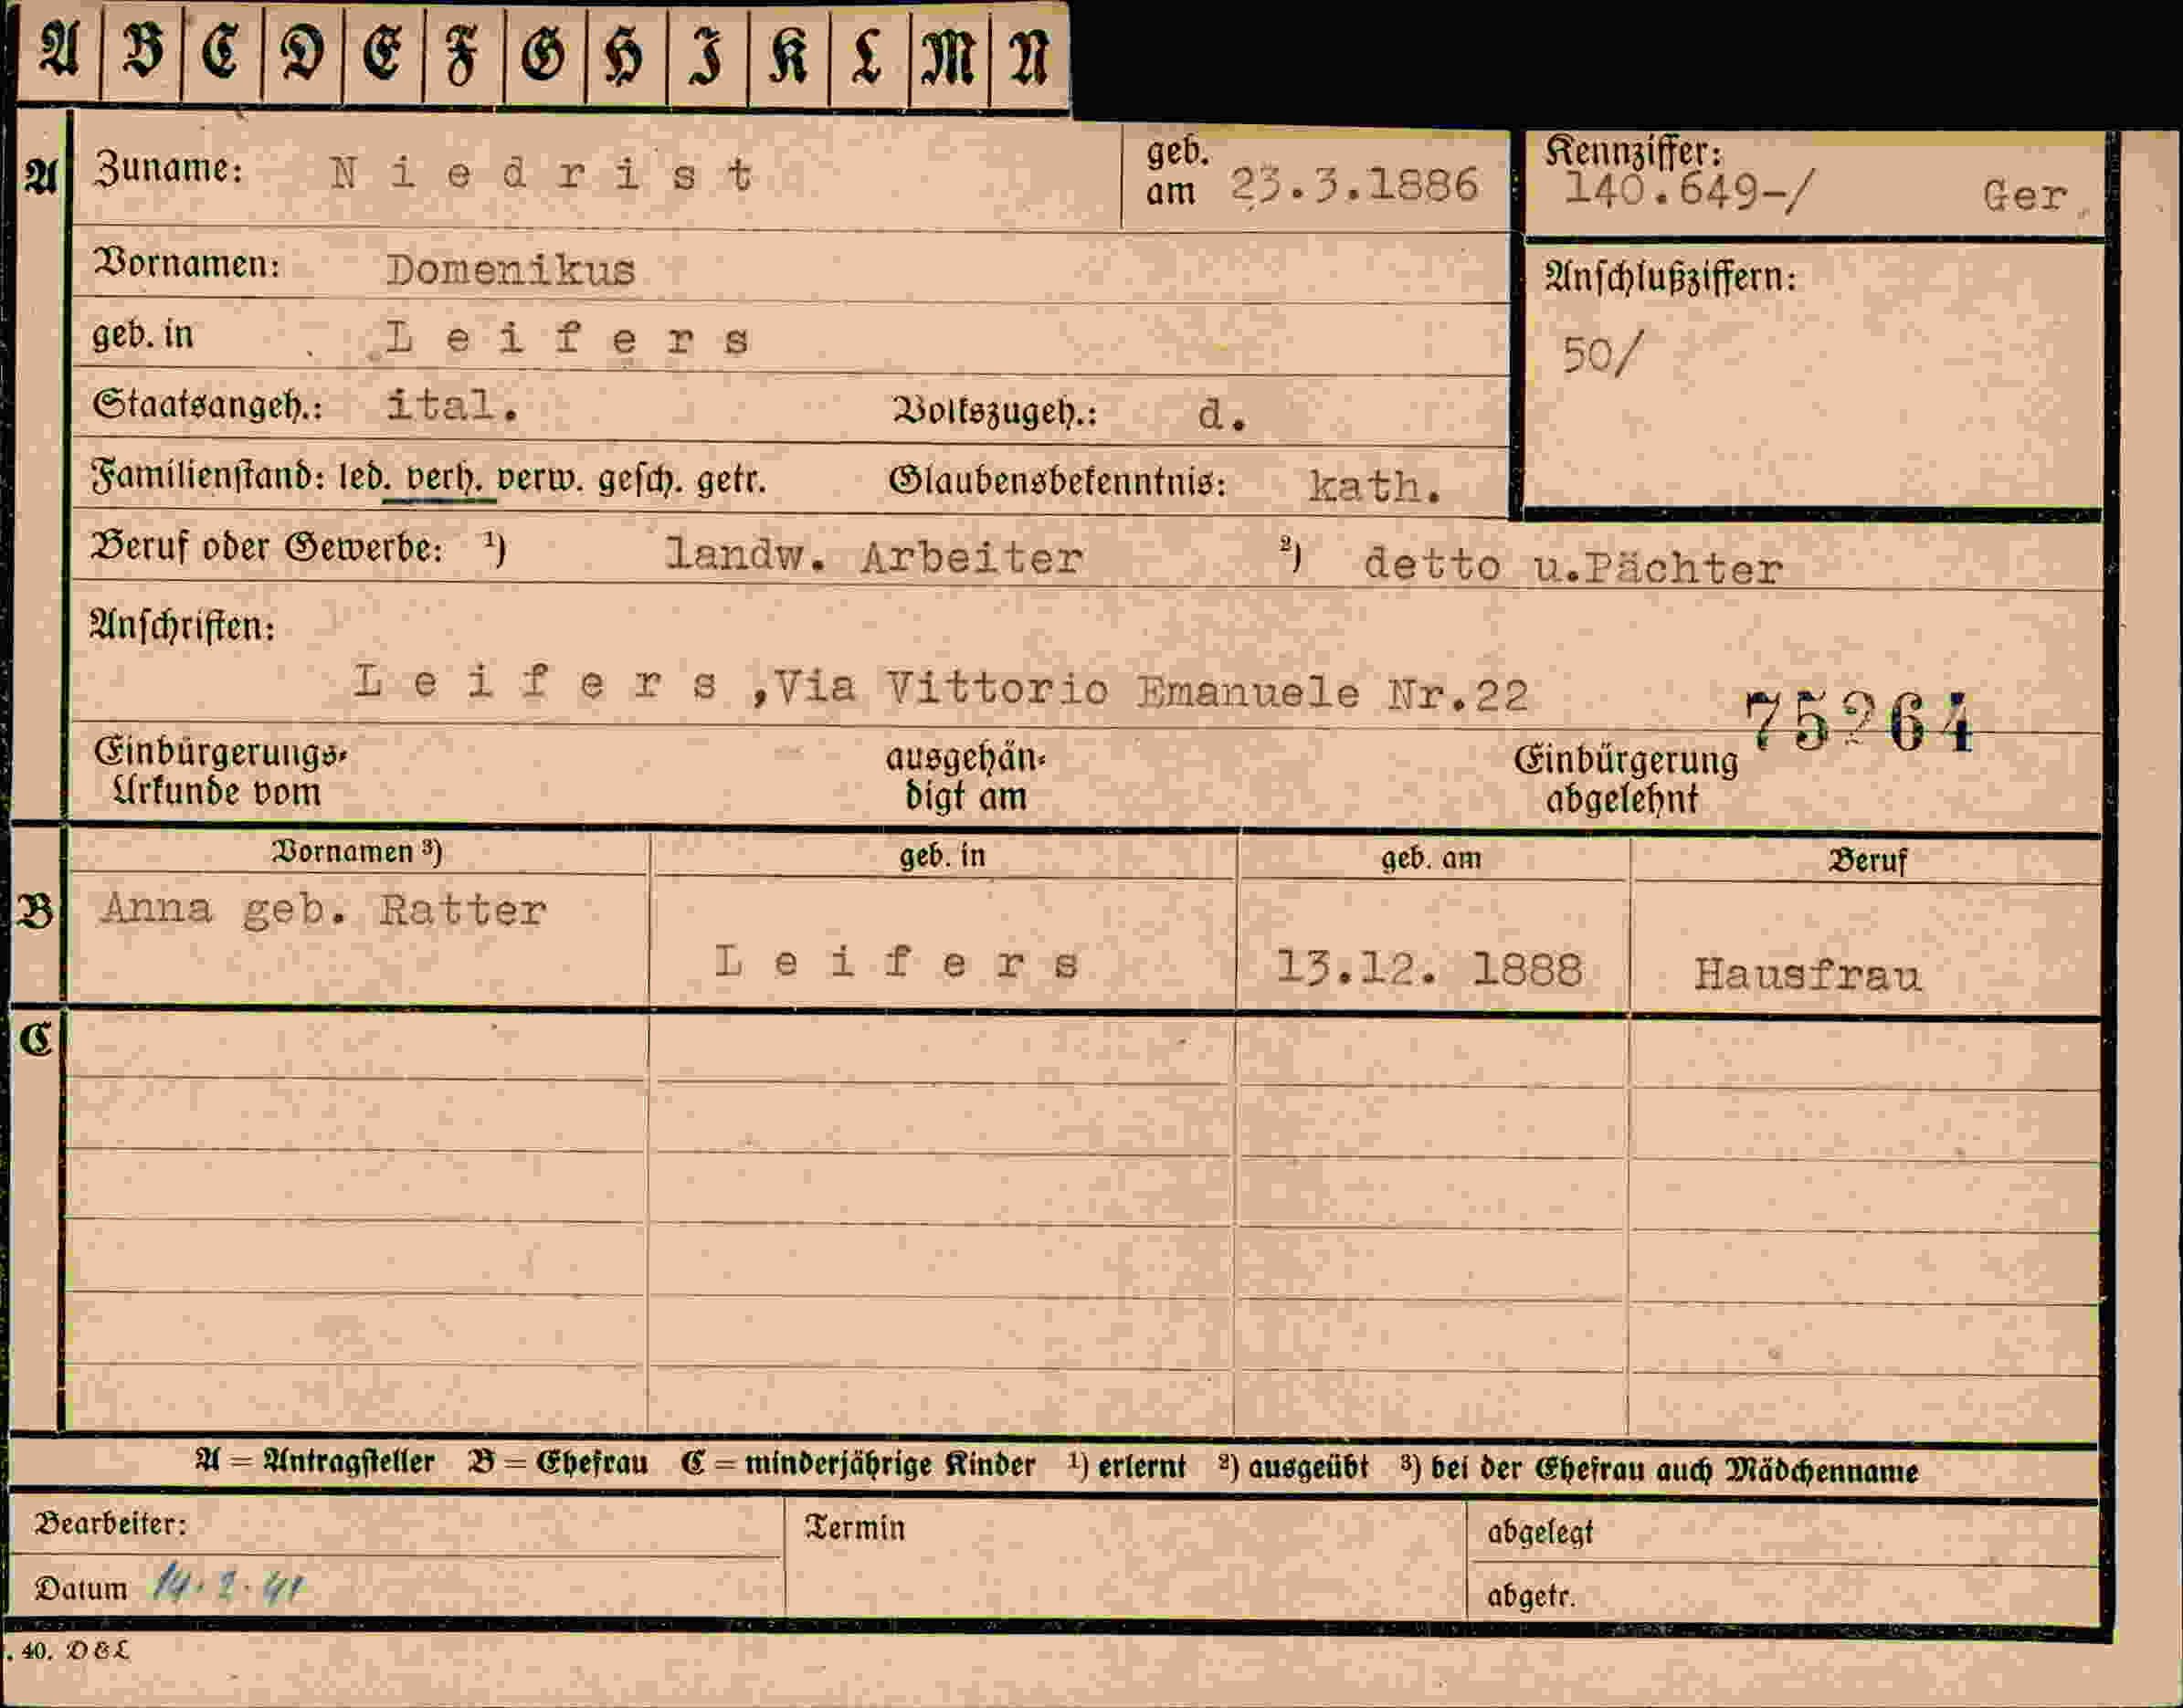 A B C D E F G H I K L M N
A Zuname: Niedrist geb. am 23.3.1886 Kennziffer: 140.649-/ Ger.
Vornamen: Domenikus Anschlußziffern:
geb. in Leifers 50/
Staatsangeh.: ital. Volkszugeh.: d.
Familienstand: led. verh. verw. gesch. getr. Glaubensbekenntnis: kath.
Beruf oder Gewerbe: ¹) landw. Arbeiter ²) detto u.Pächter
Anschriften:
Leifers,Via Vittorio Emanuele Nr.22
75264
Einbürgerungs- ausgehän- Einbürgerung
Urkunde vom digt am abgelehnt
Vornamen ³) geb. in geb. am Beruf
B Anna geb. Ratter
Leifers 13.12. 1888 Hausfrau
C
A = Antragsteller B = Ehefrau C = minderjährige Kinder ¹) erlernt ²) ausgeübt ³) bei der Ehefrau auch Mädchenname
Bearbeiter: Termin abgelegt
Datum 14. 2. 41 abgetr.
. 40. D&L